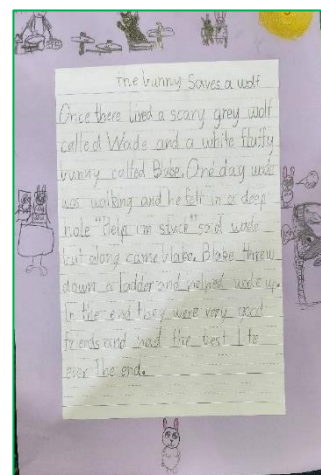 The bunny Saves a wolf
Once there lived a scary grey wolf
called Wade and a white fluffy
bunny called Blake. One day wade
was walking and he fell in a deep
hole "Help i'm stuck" said wade
but along came blake. Blake threw
down a ladder and helped wade up.
In the end they were very good
friends and had the best life
ever the end.